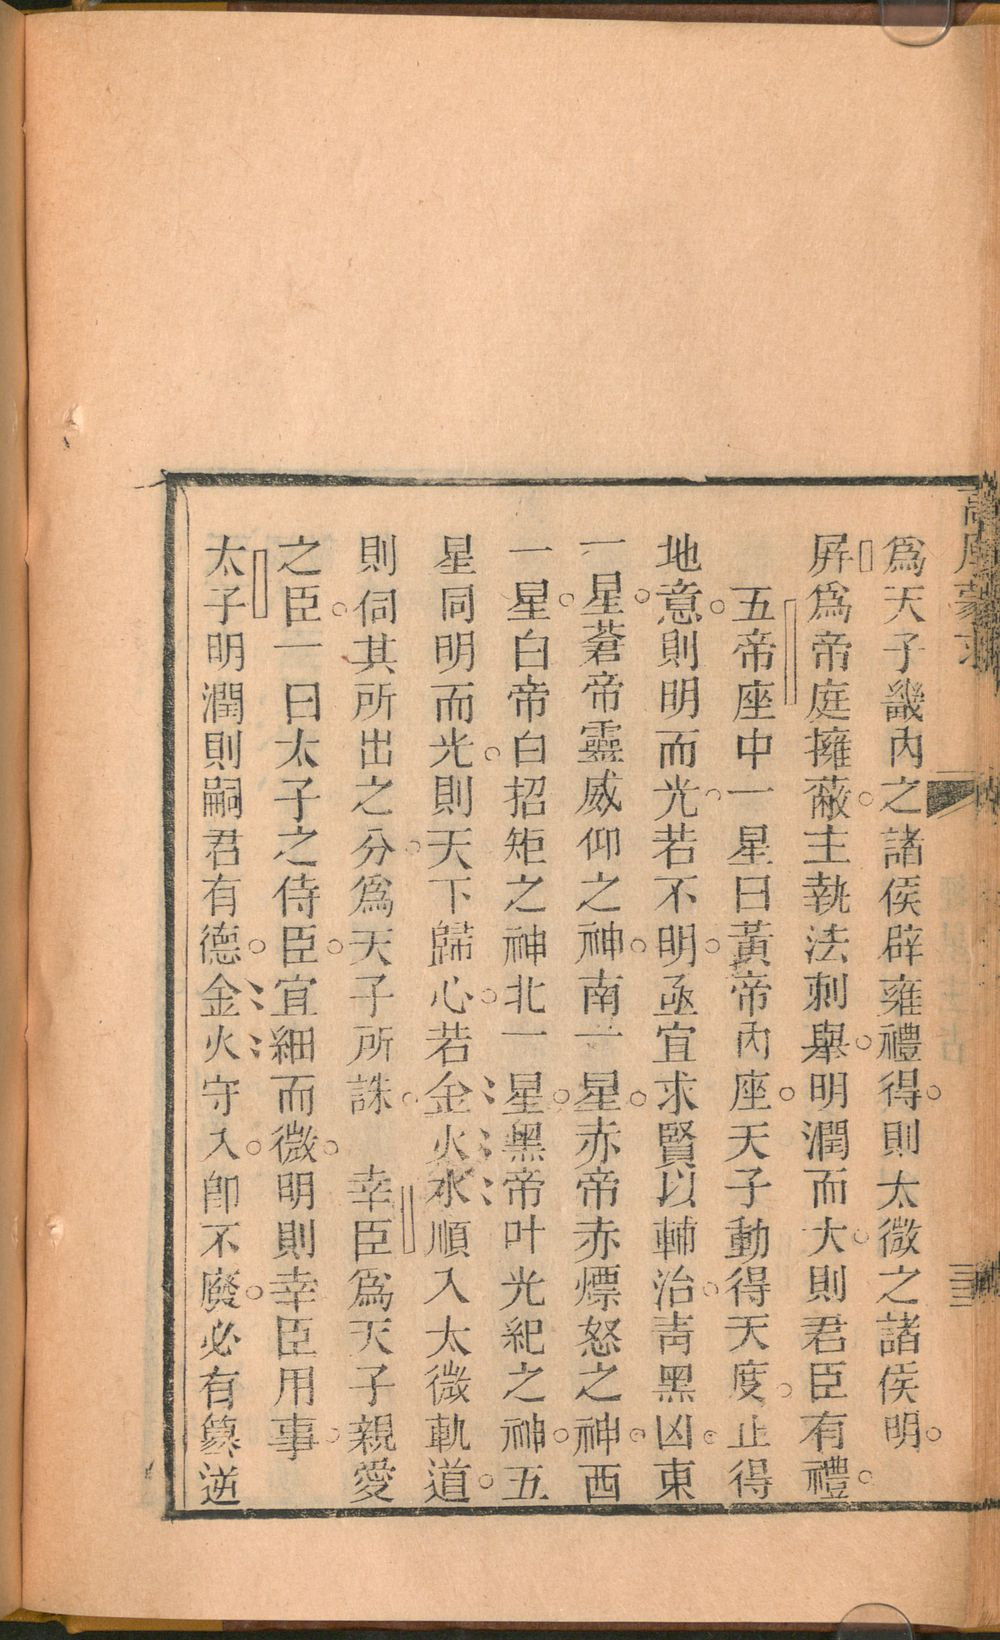 為天子畿內之諸侯辟雍禮得則太微之諸侯明
屏為帝庭擁蔽主執法刺舉明潤而大則君臣有禮
五帝座中一星曰黃帝內座天子動得天度止得
地意則明而光若不明亟宜求賢以輔治青黑凶東
一星蒼帝靈威仰之神南一星赤帝赤熛怒之神西
一星白帝白招矩之神北一星黑帝叶光紀之神五
星同明而光則天下歸心若金火水順入太微軌道
則伺其所出之分為天子所誅　幸臣為天子親愛
之臣一曰太子之侍臣宜細而微明則幸臣用事
太子明潤則嗣君有德金火守入卽不廢必有簒逆